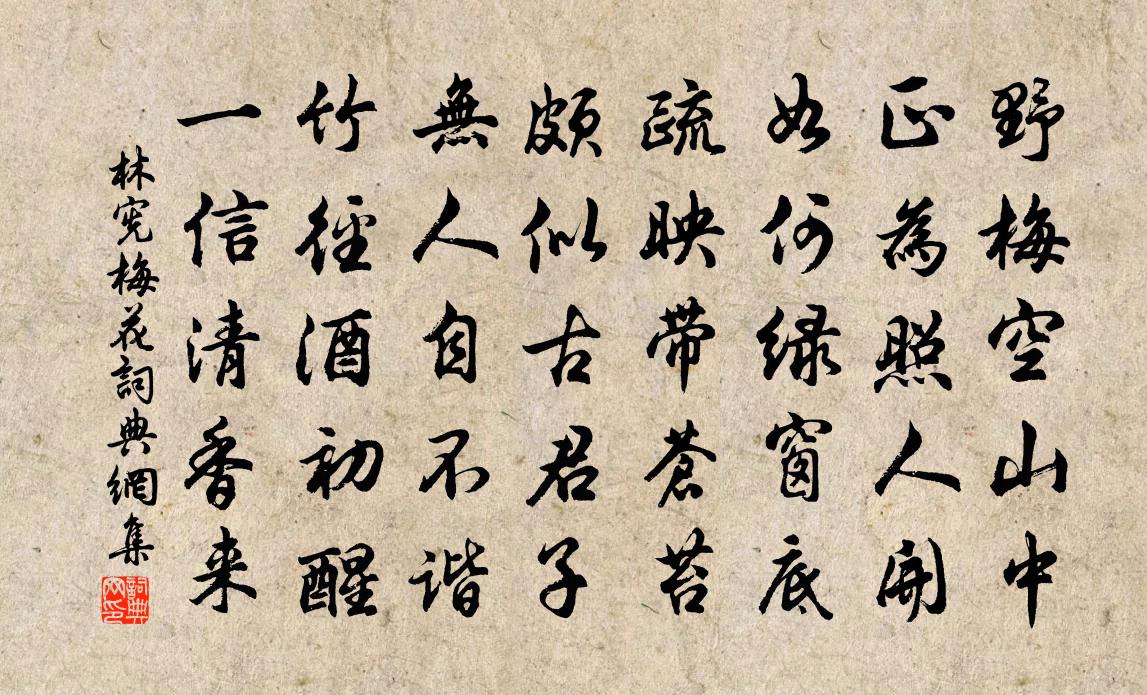 野梅空山中
正為照人開
如何緑窗底
疏映帶蒼苔
頗似古君子
無人自不諧
竹徑酒初醒
一信清香来
林宪梅花詞典網集
詞典網印